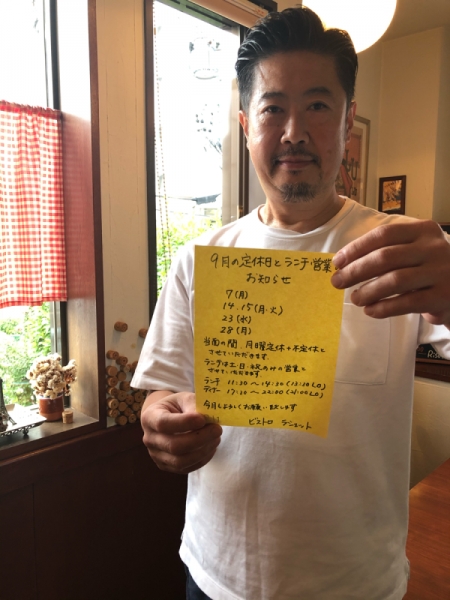 9月の定休日とランチ営業
お知らせ
7(月)
14.15(月・火)
23(水)
28(月)
当面の間、月曜定休+不定休と
させていただきます
ランチは土・日・祝のみの営業と
させていただきます
ランチ 11:30~14:30(13:30LO)
ディナー 17:30~22:00(21:00LO)
今月もよろしくお願い致します
ビストロ